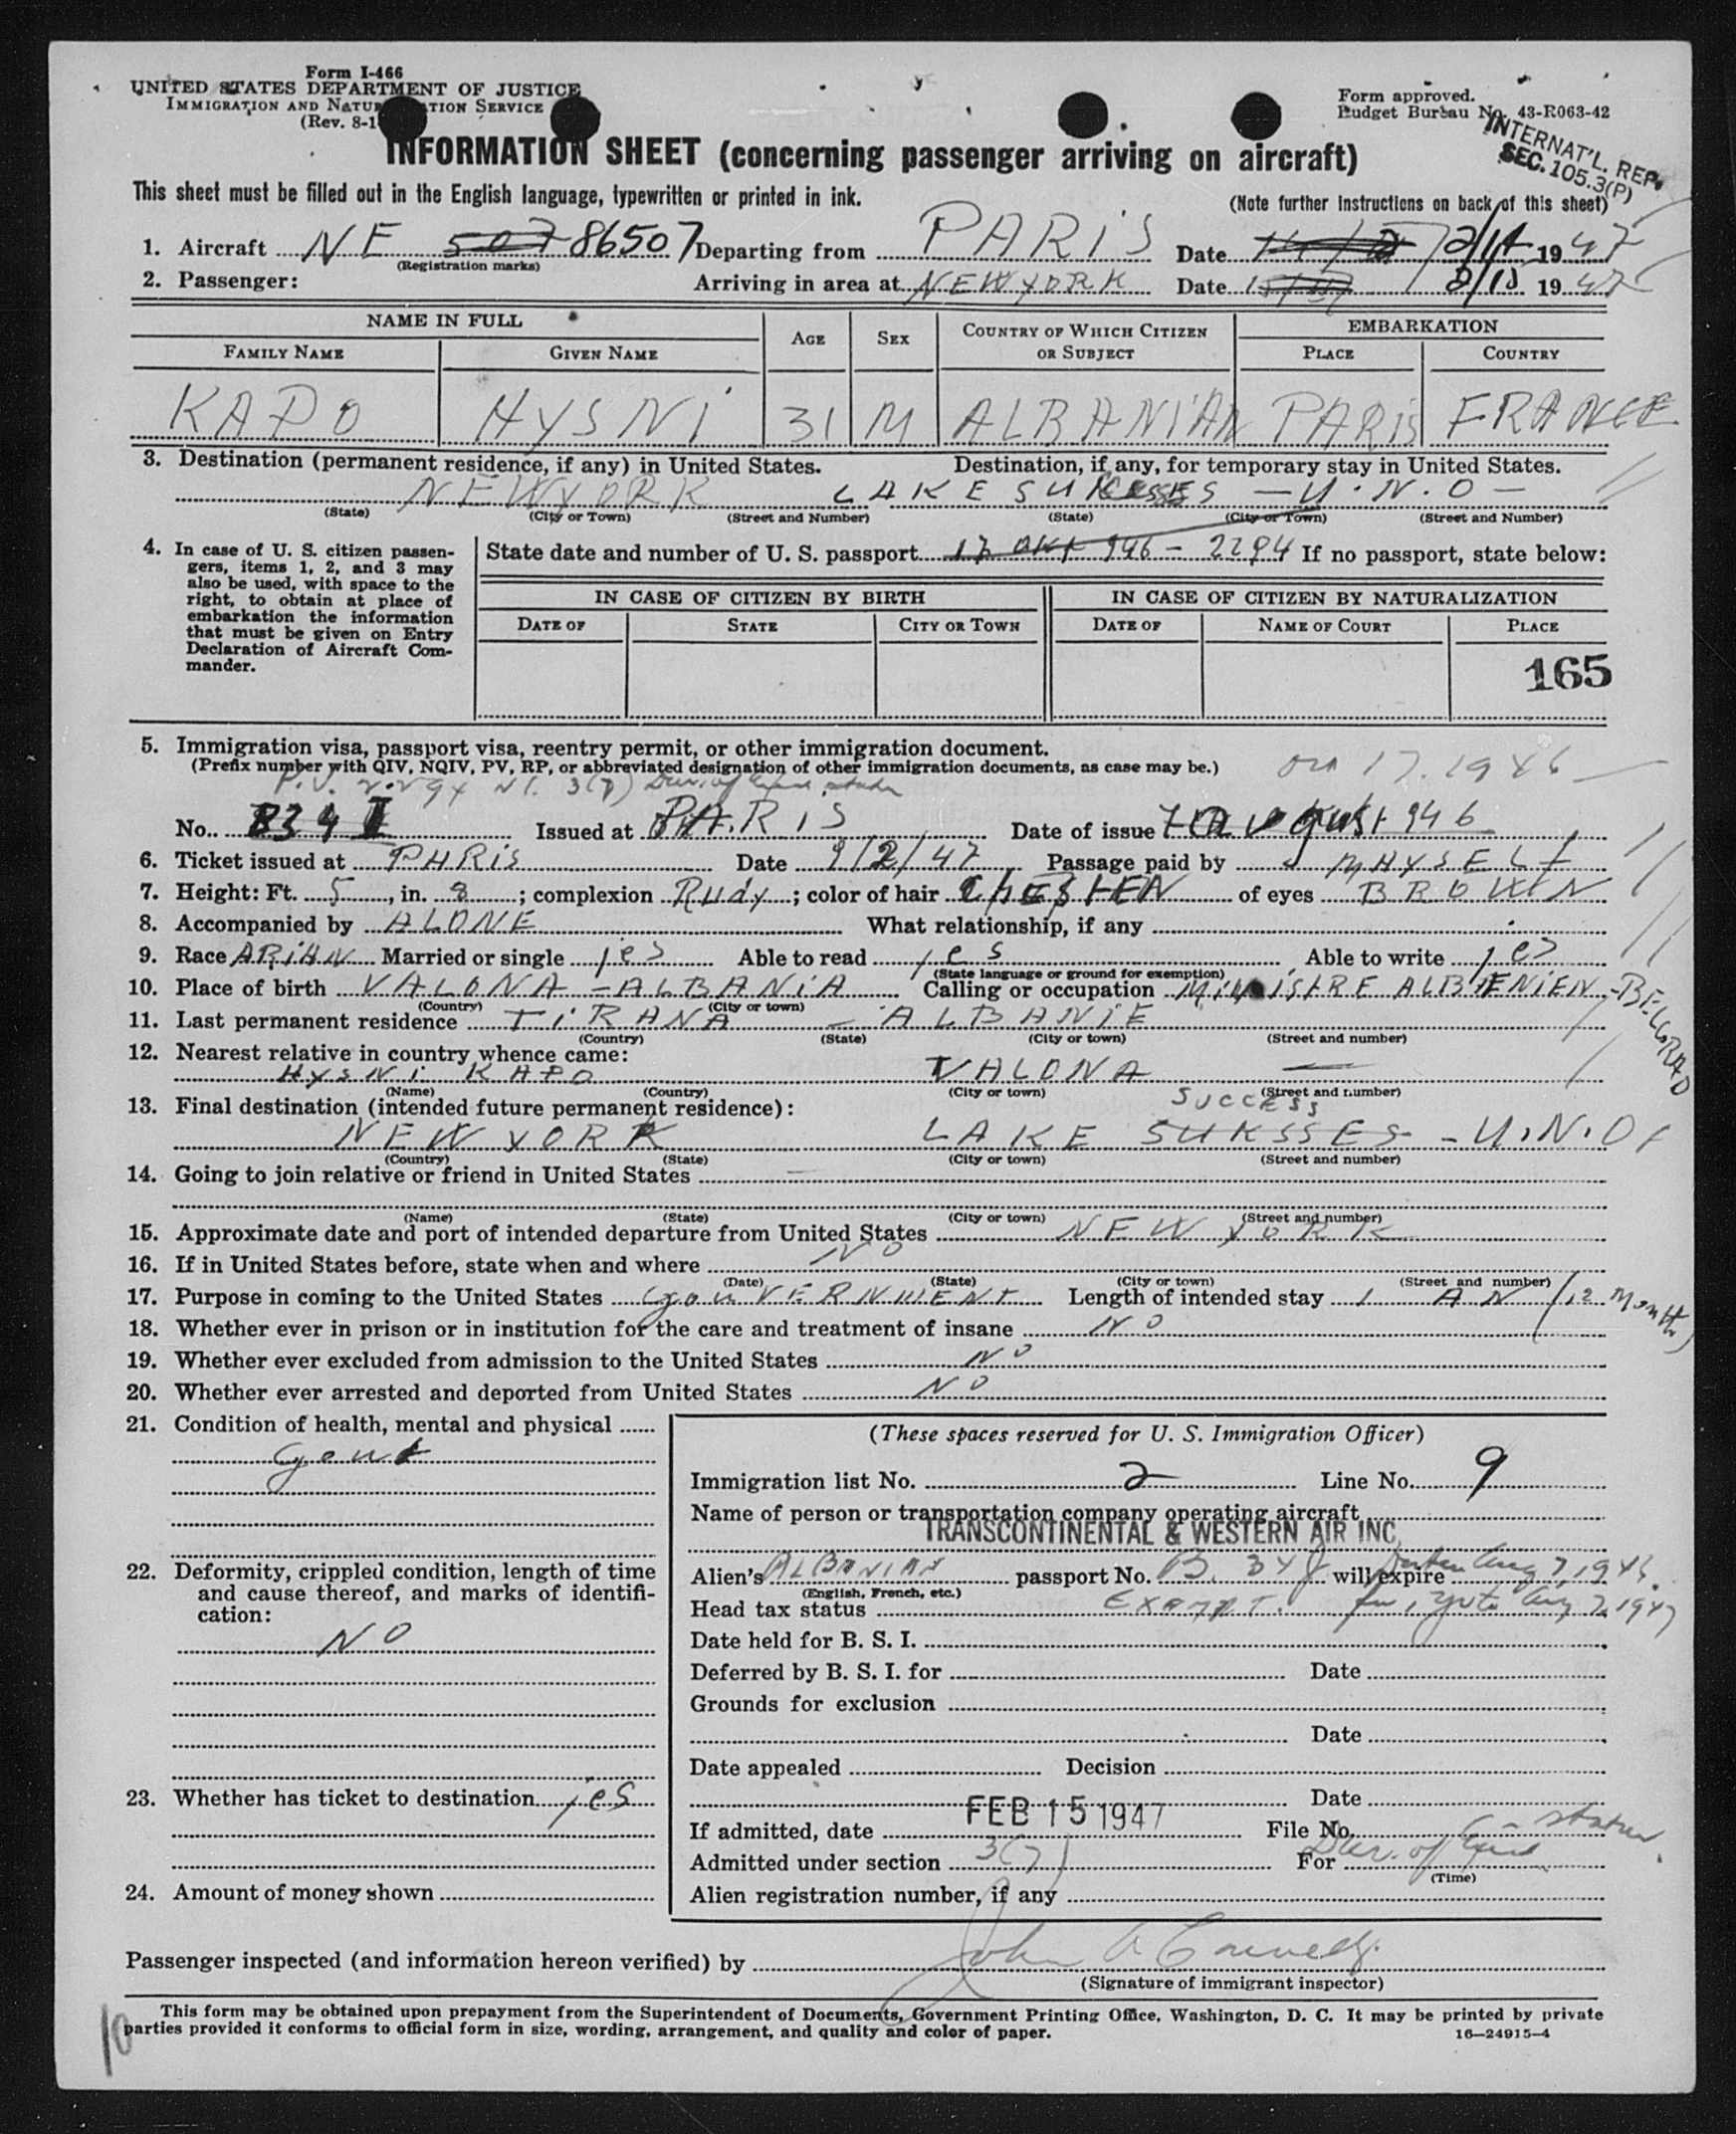 Form I-466
UNITED STATES DEPARTMENT OF JUSTICE
IMMIGRATION AND NATURALIZATION SERVICE
(Rev. 8-1
Form approved.
Budget Bureau No. 43-R063-42
INTERNAT'L. REP.
SEC. 105.3(P)
INFORMATION SHEET (concerning passenger arriving on aircraft)
This sheet must be filled out in the English language, typewritten or printed in ink.
(Note further instructions on back of this sheet)
1. Aircraft 86507 Departing from PARIS Date 2/14 1947
(Registration marks)
2. Passenger: Arriving in area at NEW YORK Date 2/15 1947
NAME IN FULL AGE SEX COUNTRY OF WHICH CITIZEN OR SUBJECT EMBARKATION
FAMILY NAME GIVEN NAME PLACE COUNTRY
KAPO HYSNI 31 M ALBANIAN PARIS FRANCE
3. Destination (permanent residence, if any) in United States. Destination, if any, for temporary stay in United States.
NEW YORK LAKE — U.N.O —
(State) (City or Town) (Street and Number) (State) (City or Town) (Street and Number)
4. In case of U. S. citizen passengers, items 1, 2, and 3 may also be used, with space to the right, to obtain at place of embarkation the information that must be given on Entry Declaration of Aircraft Commander.
State date and number of U. S. passport 17 OKT 946 - 2294 If no passport, state below:
IN CASE OF CITIZEN BY BIRTH IN CASE OF CITIZEN BY NATURALIZATION
DATE OF STATE CITY OR TOWN DATE OF NAME OF COURT PLACE
165
5. Immigration visa, passport visa, reentry permit, or other immigration document.
(Prefix number with QIV, NQIV, PV, RP, or abbreviated designation of other immigration documents, as case may be.)
P.V. 2294 3(7) 17. 1946
No. Issued at PARIS Date of issue 7 august 946
6. Ticket issued at PARIS Date 9/2/47 Passage paid by MAYSELF
7. Height: Ft. 5, in. 8; complexion Rudy; color of hair CHESTEN of eyes BROWIN
8. Accompanied by ALONE What relationship, if any
9. Race ARIAN Married or single jes Able to read jes Able to write jes
(State language or ground for exemption)
10. Place of birth VALONA - ALBANIA Calling or occupation MINISTRE ALBENIEN - BELGRAD
(Country) (City or town)
11. Last permanent residence TIRANA - ALBANIE
(Country) (State) (City or town) (Street and number)
12. Nearest relative in country whence came:
HYSNI KAPO VALONA —
(Name) (Country) (City or town) (Street and number)
13. Final destination (intended future permanent residence):
SUCCESS
NEW YORK LAKE SUKSSES - U.N.O
(Country) (State) (City or town) (Street and number)
14. Going to join relative or friend in United States —
(Name) (State) (City or town) (Street and number)
15. Approximate date and port of intended departure from United States NEW YORK
16. If in United States before, state when and where NO
(Date) (State) (City or town) (Street and number)
17. Purpose in coming to the United States gouVERNMENT Length of intended stay 1 AN (12 Months)
18. Whether ever in prison or in institution for the care and treatment of insane NO
19. Whether ever excluded from admission to the United States NO
20. Whether ever arrested and deported from United States NO
21. Condition of health, mental and physical
22. Deformity, crippled condition, length of time and cause thereof, and marks of identification:
NO
23. Whether has ticket to destination jes
24. Amount of money shown
(These spaces reserved for U. S. Immigration Officer)
Immigration list No. 2 Line No. 9
Name of person or transportation company operating aircraft
TRANSCONTINENTAL & WESTERN AIR INC
Alien's ALBANIAN passport No. will expire Aug 7, 1946.
(English, French, etc.)
Head tax status EXEMPT. to Aug 7, 1947
Date held for B. S. I.
Deferred by B. S. I. for Date
Grounds for exclusion
Date
Date appealed Decision
Date
If admitted, date FEB 15 1947 File No.
Admitted under section 3(7) For Dur. of status
(Time)
Alien registration number, if any
Passenger inspected (and information hereon verified) by John
(Signature of immigrant inspector)
This form may be obtained upon prepayment from the Superintendent of Documents, Government Printing Office, Washington, D. C. It may be printed by private
parties provided it conforms to official form in size, wording, arrangement, and quality and color of paper. 16—24915-4
10